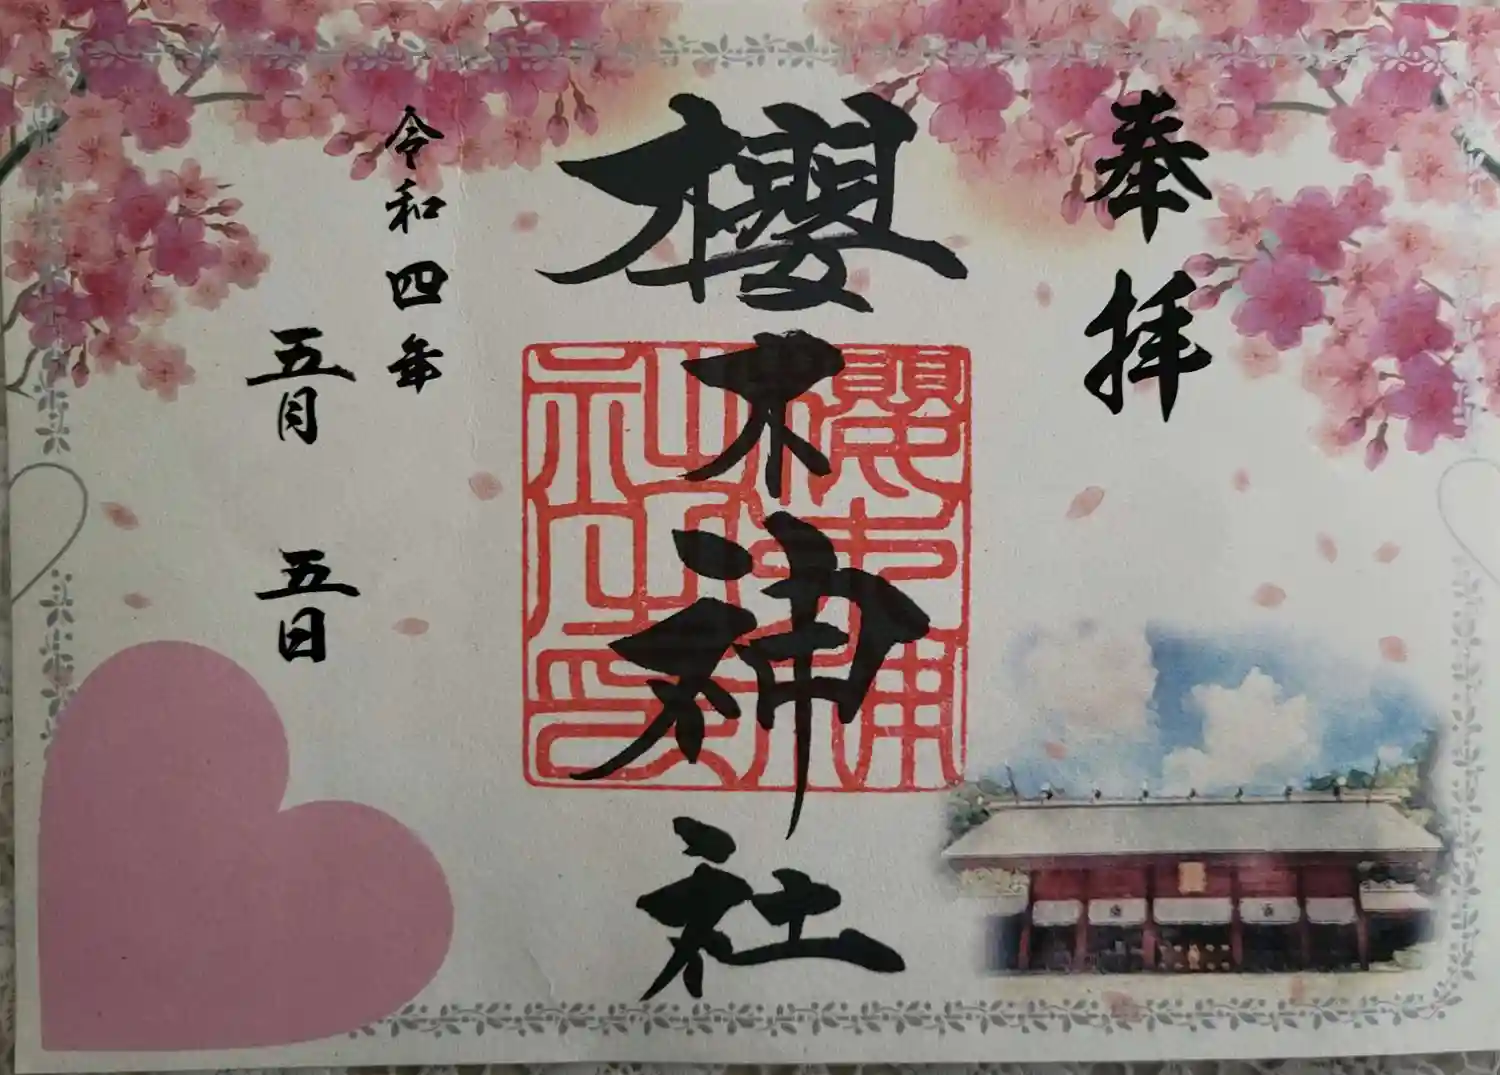 奉拝
櫻木神社
櫻木神社之印
令和四年
五月五日